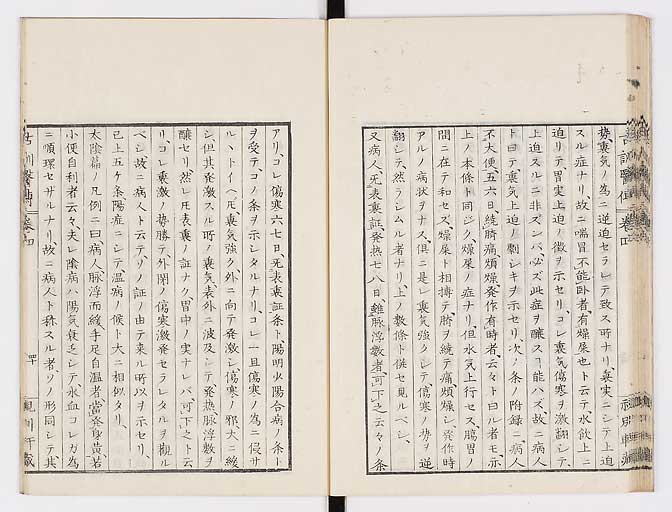 勢裏気ノ為ニ逆迫セラレテ致ス所ナリ裏実ニシテ上迫
スル症ナリ故ニ喘冒不能臥者有燥屎也ト云テ水飲上ニ
迫リテ胃実上迫ノ徴ヲ示セリコレ裏気傷寒ヲ激翻シテ
上迫スルニ非ズンバ必ズ此症ヲ醸ス能ハズ故ニ病人
ト曰テ裏気上迫ノ劇シキヲ示セリ次ノ条ノ附録ニ病人
不大便五六日繞臍痛煩燥発作有時者云々ト曰ル者モ亦
上ノ本條ト同ジク燥屎ノ症ナリ但水気上行セス腸胃ノ
間ニ在テ和セズ燥屎ト相搏テ臍ヲ繞テ痛煩燥シ発作時
アルノ病状ヲナス倶ニ是レ裏気強クシテ傷寒ノ勢ヲ逆
翻シテ然ラシムル者ナリ上ノ数條ト併セ見ルベシ
又病人无表裏証発熱七八日雖脉浮数者可下之云々ノ条
アリコレ傷寒六七日无表裏証条ト陽明少陽合病ノ条ト
ヲ受テコノ条ヲ示シタルナリコレ一旦傷寒ノ為ニ侵サ
ルヽトイヘ𪜈裏気強ク外ニ向テ発激シ傷寒ノ邪大ニ緩
シ但其発激スル時ノ裏気表外ニ波及シテ発熱脉浮数ヲ
醸セリ然レ𪜈表裏ノ証ナク胃中ノ実ナレバ可下之ト云
リコレ裏激ノ勢勝テ外閉ノ傷寒激発セラレタルヲ観ル
ベシ故ニ病人ト云テソノ証ノ由テ来ル所以ヲ示セリ
已上五ケ条陽症ニシテ温病ノ候ト大ニ相似タリ
太陰篇ノ凡例ニ曰病人脉浮而緩手足自温者当発身黄若
小便自利者云々夫レ陰病ハ陽気衰乏シテ水血コレガ為
ニ順環セザルナリ故ニ病人ト称スル者ソノ形同シテ其
古訓醫傳 巻四
四十